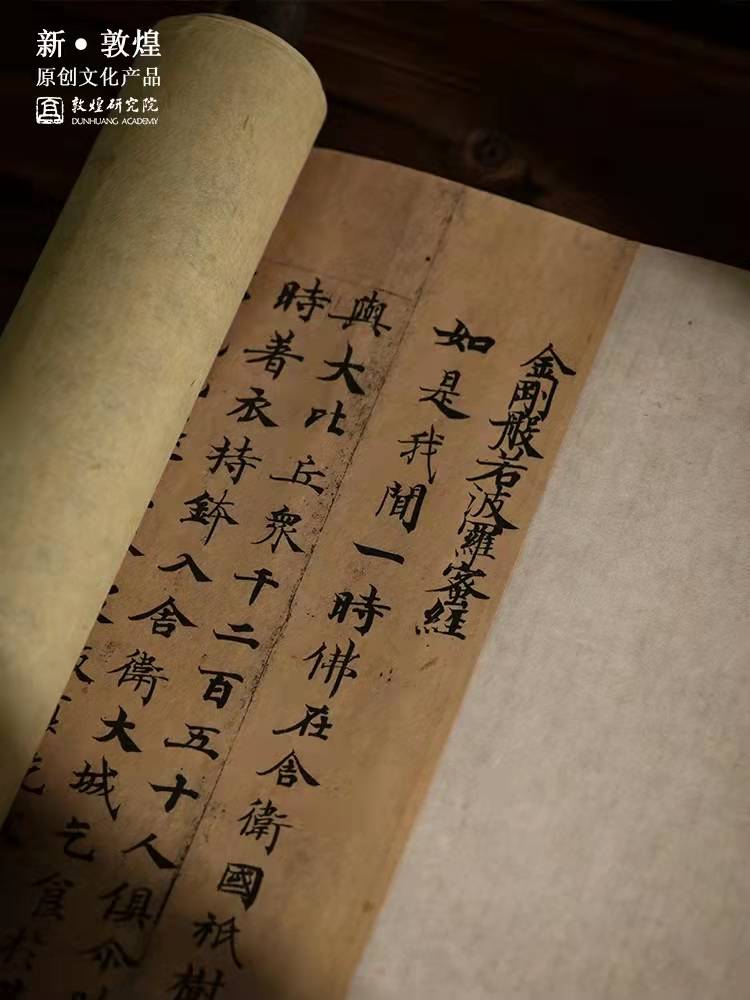 新·敦煌
原创文化产品
敦煌研究院
DUNHUANG ACADEMY
金剛般若波羅蜜經
如是我聞一時佛在舍衛國祇樹
與大比丘眾千二百五十人俱尒時
時著衣持鉢入舍衛大城乞食於